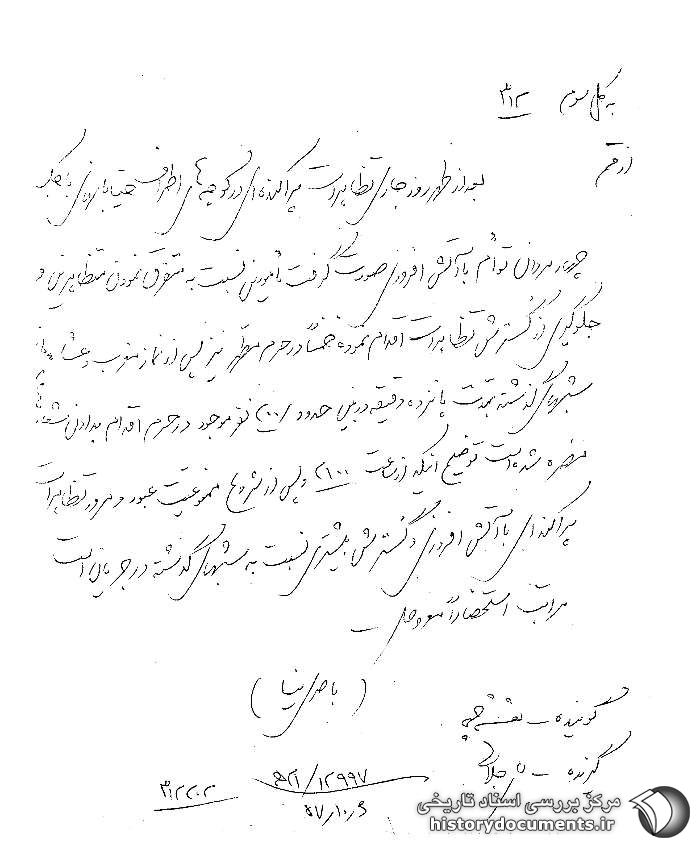 به کل سوم ۳۱۲
از قم
بعد از ظهر روز جاری تظاهرات پراکنده‌ای در کوچه‌های اطراف
چهارمردان توأم با آتش افروزی صورت گرفت مأمورین نسبت به متفرق نمودن متظاهرین و
جلوگیری از گسترش تظاهرات اقدام نموده ضمناً در حرم مطهر نیز پس از نماز مغرب و عشاء
شبهای گذشته بمدت پانزده دقیقه در بین حدود ۲۰۰۰ نفر موجود در حرم اقدام بدادن
مضره شده است توضیح اینکه از ساعت ۲۱۰۰ و پس از شروع ممنوعیت عبور و مرور تظاهرات
پراکنده‌ای با آتش افروزی و گسترش بیشتری نسبت به شبهای گذشته در جریان است
مراتب استحضاراً معروض
گوینده -
گیرنده -
۵۲۱/۱۲۹۹۷
۵۷٫۱۰٫۶
۳۱۲۲۰۲
مرکز بررسی اسناد تاریخی
historydocuments.ir